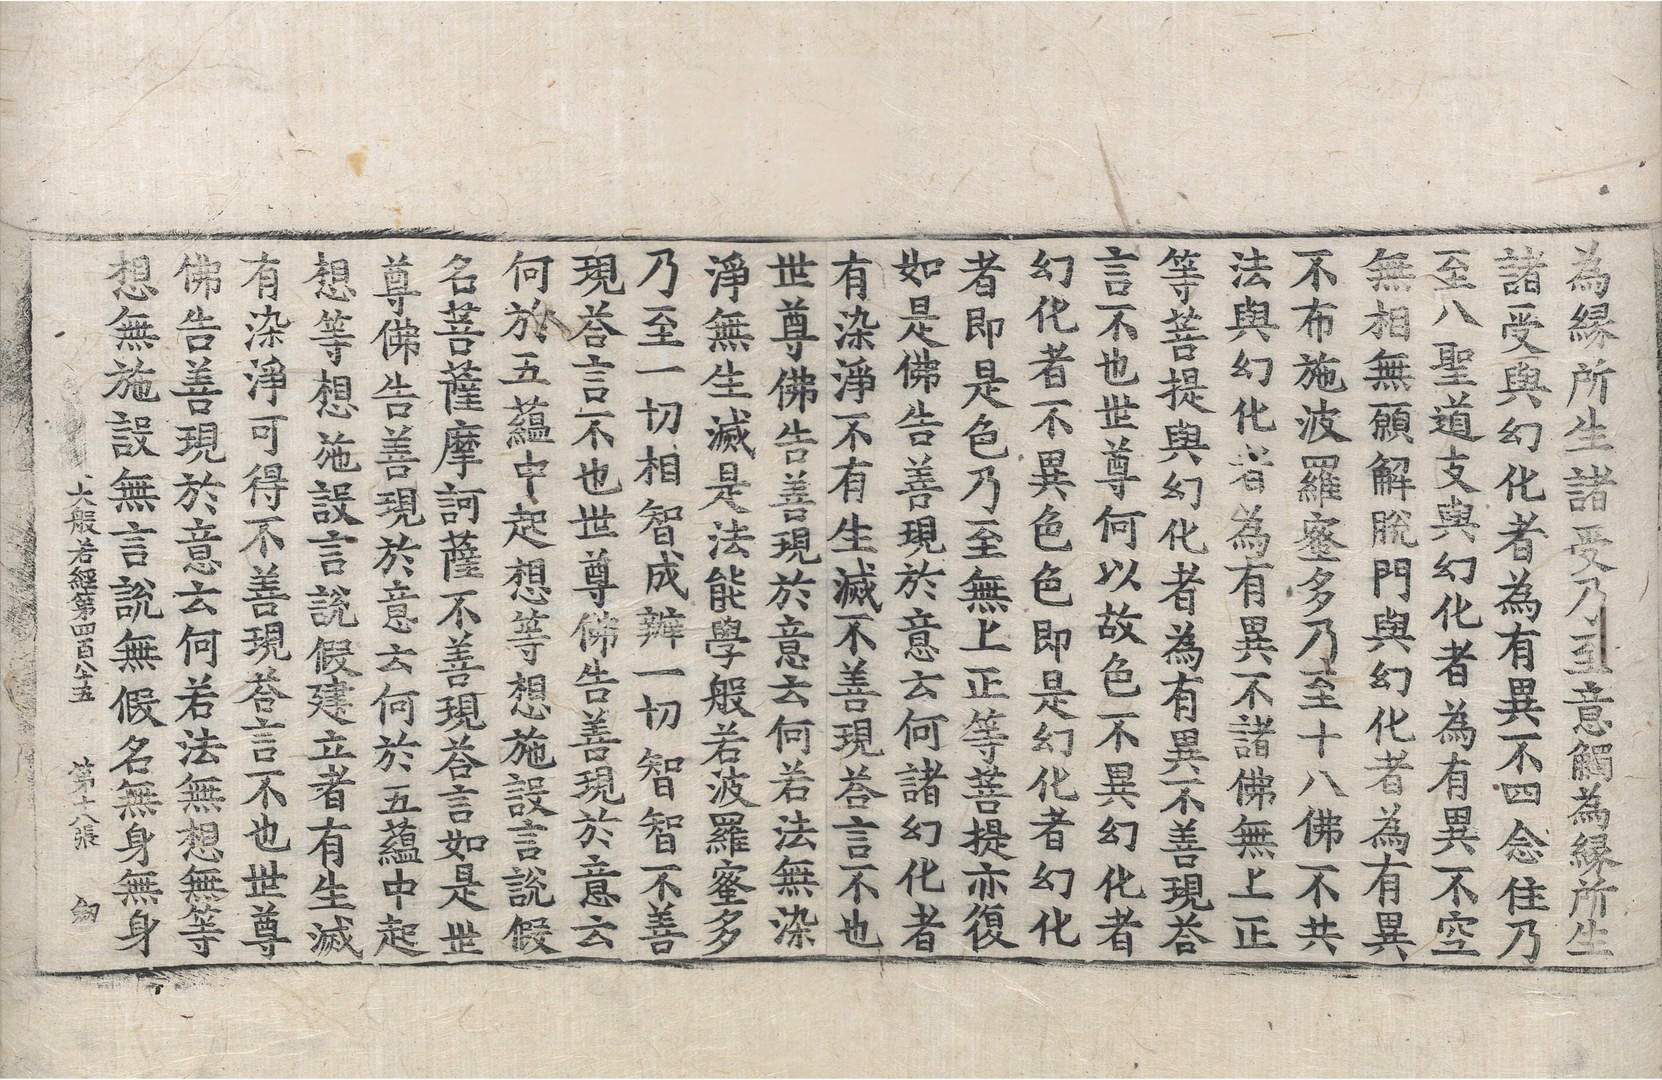 為緣所生諸受乃至意觸為緣所生
諸受與幻化者為有異不四念住乃
至八聖道支與幻化者為有異不空
無相無願解脫門與幻化者為有異
不布施波羅蜜多乃至十八佛不共
法與幻化者為有異不諸佛無上正
等菩提與幻化者為有異不善現荅
言不也世尊何以故色不異幻化者
幻化者不異色色即是幻化者幻化
者即是色乃至無上正等菩提亦復
如是佛告善現於意云何諸幻化者
有染淨不有生滅不善現荅言不也
世尊佛告善現於意云何若法無染
淨無生滅是法能學般若波羅蜜多
乃至一切相智成辦一切智智不善
現荅言不也世尊佛告善現於意云
何於五蘊中起想等想施設言說假
名菩薩摩訶薩不善現荅言如是世
尊佛告善現於意云何於五蘊中起
想等想施設言說假建立者有生滅
有染淨可得不善現荅言不也世尊
佛告善現於意云何若法無想無等
想無施設無言說無假名無身無身
大般若經第四百八十五 第十八張 釰